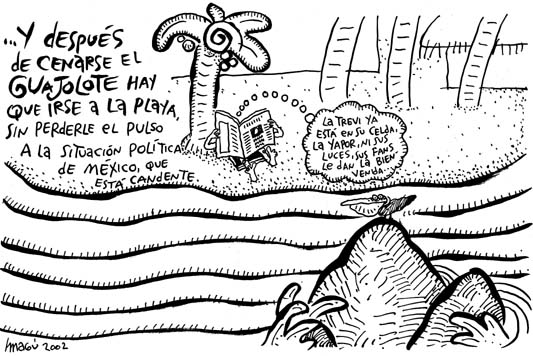 ...Y DESPUÉS
DE CENARSE EL
GUAJOLOTE HAY
QUE IRSE A LA PLAYA,
SIN PERDERLE EL PULSO
A LA SITUACIÓN POLÍTICA
DE MÉXICO, QUE
ESTÁ CANDENTE.
LA TREVI YA
ESTÁ EN SU CELDA,
LA YAPOR, NI SUS
LUCES, SUS FANS
LE DAN LA BIEN
VENDA.
MAGÚ 2002